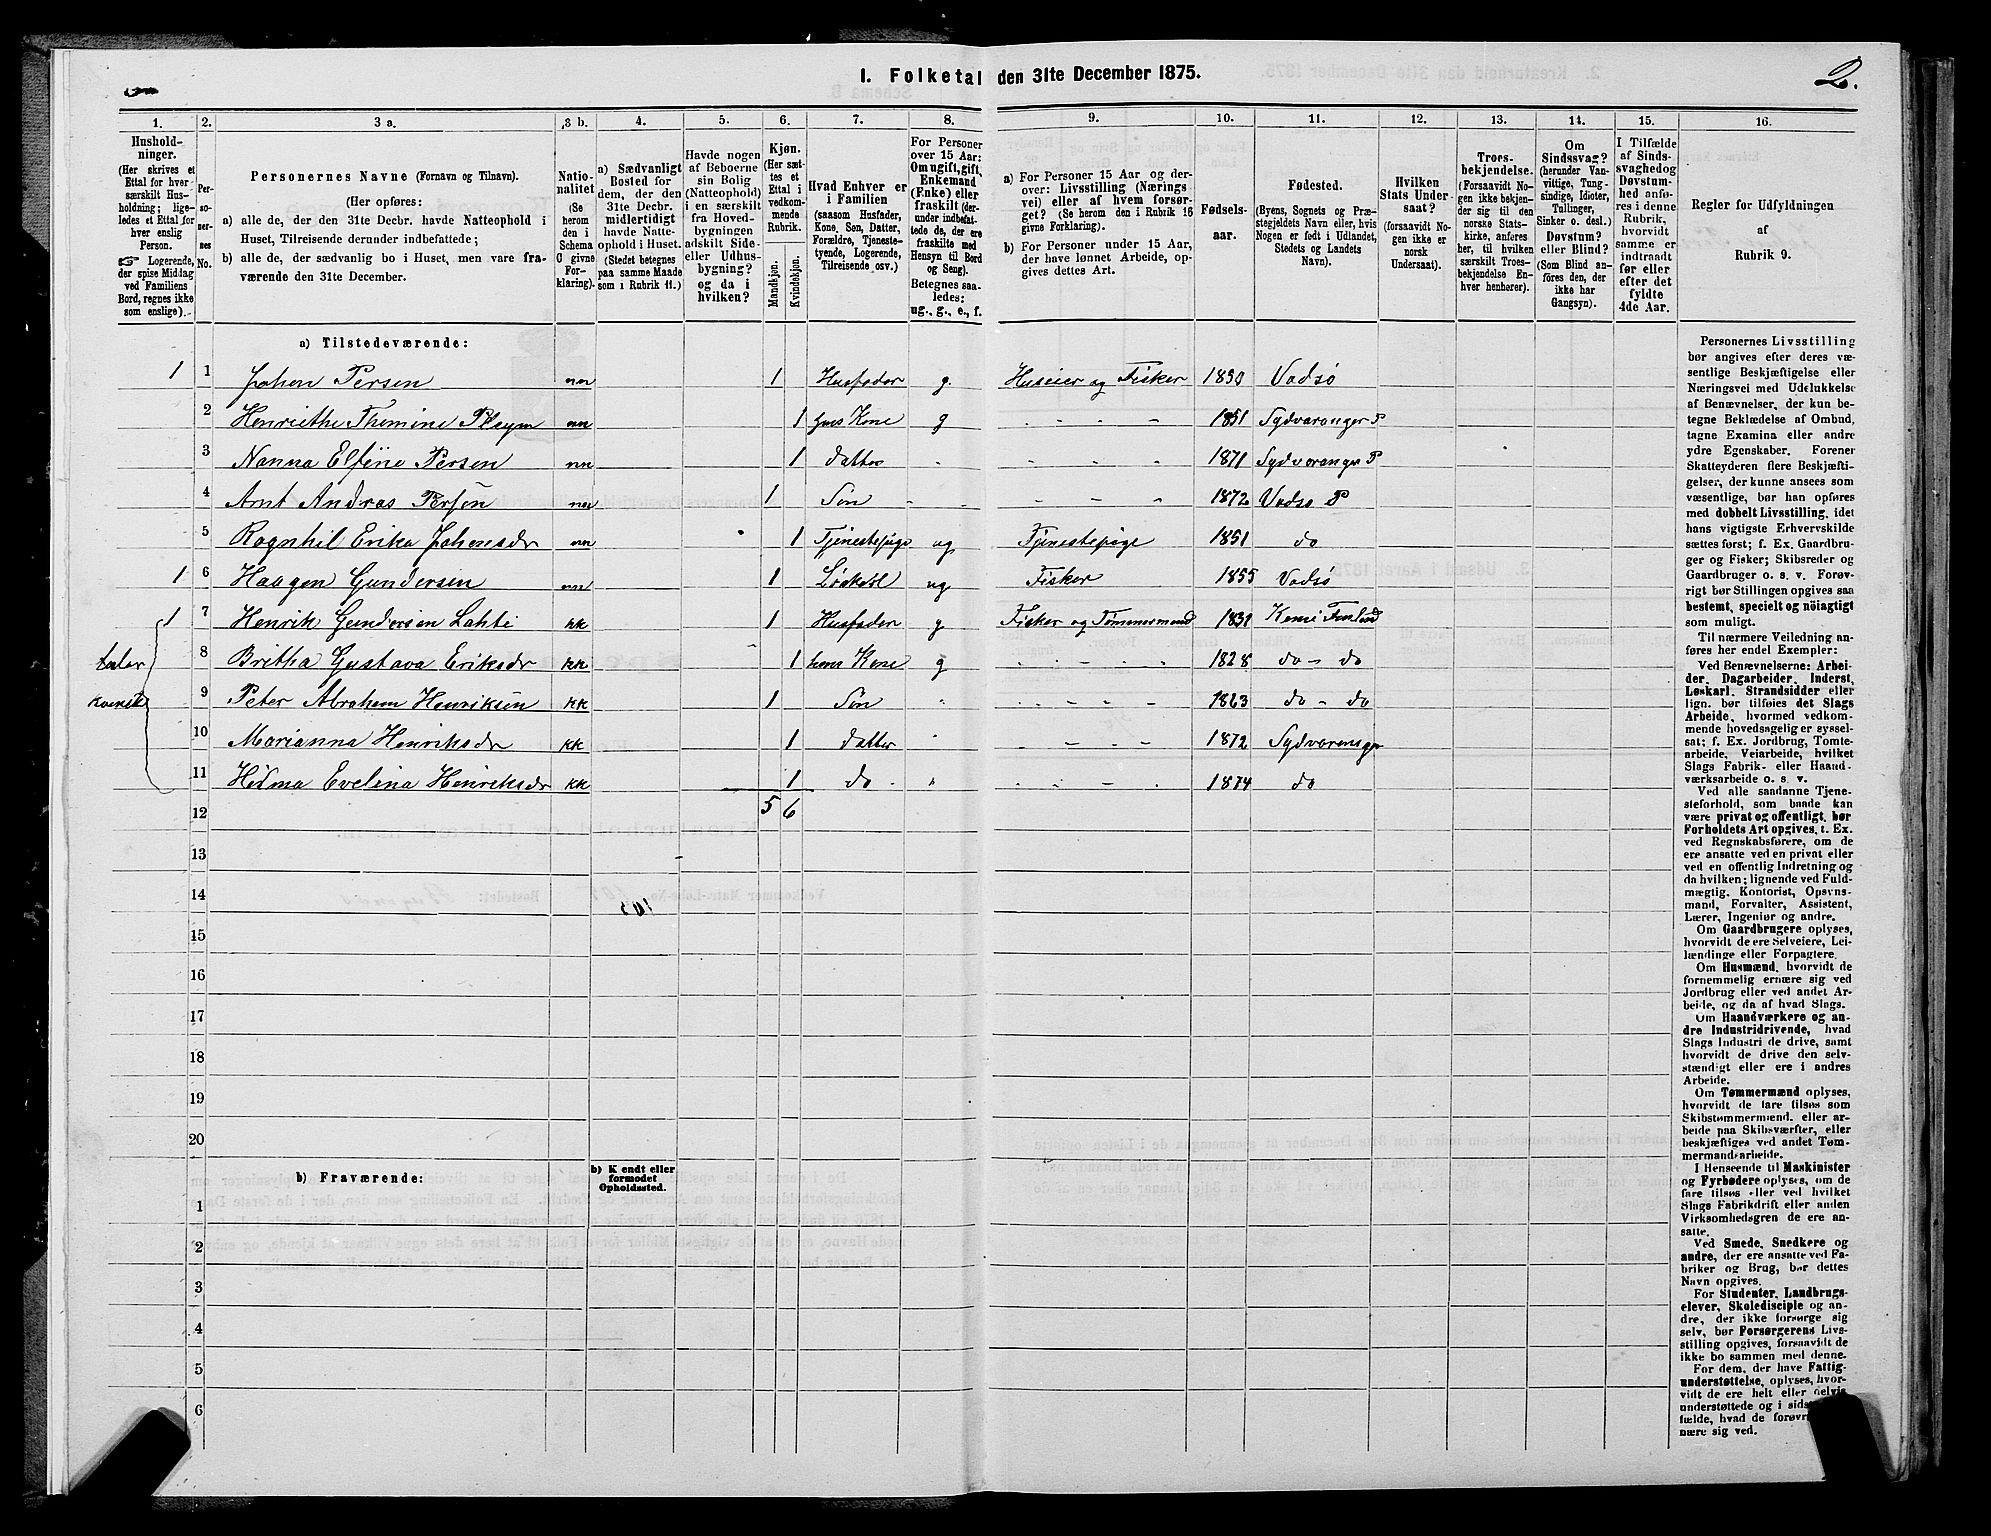 2.
I. Folketal den 31te December 1875.
1. 2. 3 a. 3 b. 4. 5. 6. 7. 8. 9. 10. 11. 12. 13. 14. 15. 16.
Husholdninger.
(Her skrives et Ettal for hver særskilt Husholdning; ligeledes et Ettal for hver enslig Person.
☞ Logerende, der spise Middag ved Familiens Bord, regnes ikke som enslige).
Personernes No.
Personernes Navne (Fornavn og Tilnavn).
(Her opføres:
a) alle de, der den 31te Decbr. havde Natteophold i Huset, Tilreisende derunder indbefattede;
b) alle de, der sædvanlig bo i Huset, men vare fraværende den 31te December.
Nationalitet (Se herom den i Schema C givne Forklaring).
a) Sædvanligt Bosted for dem, der den 31te Decbr. midlertidigt havde Natteophold i Huset. (Stedet betegnes paa samme Maade som i Rubrik 11.)
Havde nogen af Beboerne sin Bolig (Natteophold) i en særskilt fra Hovedbygningen adskilt Side- eller Udhusbygning? og da i hvilken?
Kjøn. (Her sættes et Ettal i vedkommende Rubrik.
Mandkjøn. Kvindekjøn.
Hvad Enhver er i Familien
(saasom Husfader, Kone, Søn, Datter, Forældre, Tjenestetyende, Logerende, Tilreisende osv.)
For Personer over 15 Aar: Om ugift, gift, Enkemand (Enke) eller fraskilt (derunder indbefattede de, der ere fraskilte med Hensyn til Bord og Seng).
Betegnes saaledes: ug., g., e., f.
a) For Personer 15 Aar og derover: Livsstilling (Næringsvei) eller af hvem forsørget? (Se herom den i Rubrik 16 givne Forklaring).
b) For Personer under 15 Aar, der have lønnet Arbeide, opgives dettes Art.
Fødselsaar.
Fødested.
(Byens, Sognets og Præstegjeldets Navn eller, hvis Nogen er født i Udlandet, Stedets og Landets Navn).
Hvilken Stats Undersaat?
(forsaavidt Nogen ikke er norsk Undersaat).
Troesbekjendelse.
(Forsaavidt Nogen ikke bekjender sig til den norske Statskirke, anføres her, til hvilken særskilt Troesbekjendelse Enhver henhører).
Om Sindssvag? (herunder Vanvittige, Tungsindige, Idioter, Tullinger, Sinker o. desl.) Døvstum? eller Blind? (Som Blind anføres den, der ikke har Gangsyn).
I Tilfælde af Sindssvaghed og Døvstumhed anføres i denne Rubrik, hvorvidt samme er indtraadt før eller efter det fyldte 4de Aar.
Regler for Udfyldningen af Rubrik 9.
a) Tilstedeværende:
1 1 Johan Persen nn 1 Husfader g. Huseier og Fisker 1850 Vadsø
2 Henriethe Thomine Pleym nn 1 hans Kone g 1851 Sydvaranger P
3 Nanna Elfine Persen nn 1 datter 1871 Sydvaranger P
4 Arnt Andras Persen nn 1 Søn 1872 Vadsø P
5 Ragnhil Erika Johansdr nn 1 Tjenestepige ug Tjenestepige 1851 do
1 6 Haagen Gundersen nn 1 ug Fisker 1855 Vadsø
1 7 Henrik Gundersen Lahti kk 1 Husfader g Fisker og Tømmermand 1831 Kemi Finland
taler 8 Britha Gustava Eriksdr kk 1 hans Kone g 1828 do - do
kvensk 9 Peter Abraham Henriksen kk 1 Søn 1863 do - do
10 Marianna Henriksdr kk 1 datter 1872 Sydvaranger
11 Hilma Evelina Henriksdr kk 1 do 1874 do
12 5 6
13
14
15
16
17
18
19
20
b) Fraværende:
b) Kendt eller formodet Opholdssted.
1
2
3
4
5
6
Personernes Livsstilling
bør angives efter deres væ-
sentlige Beskjæftigelse eller
Næringsvei med Udelukkelse
af Benævnelser, der kun be-
tegne Beklædelse af Ombud,
tagne Examina eller andre
ydre Egenskaber. Forener
Skatteyderen flere Beskjæfti-
gelser, der kunne ansees som
væsentlige, bør han opføres
med dobbelt Livsstilling, idet
hans vigtigste Erhvervskilde
sættes først; f. Ex. Gaardbru-
ger og Fisker; Skibsreder og
Gaardbruger o. s. v. Forøv-
rigt bør Stillingen opgives saa
bestemt, specielt og nöiagtigt
som muligt.
Til nærmere Veiledning an-
føres her endel Exempler:
Ved Benævnelserne: Arbei-
der, Dagarbeider, Inderst,
Løskarl, Strandsidder eller
lign. bør tilføies det Slags
Arbeide, hvormed vedkom-
mende hovedsagelig er syssel-
sat; f. Ex. Jordbrug, Tomte-
arbeide, Veiarbeide, hvilket
Slags Fabrik- eller Haand-
værksarbeide o. s. v.
Ved alle saadanne Tjene-
steforhold, som baade kan
være privat og offentligt, bør
Forholdets Art opgives, t. Ex.
ved Regnskabsførere, om de
ere ansatte ved en privat eller
ved en offentlig Indretning og
da hvilken; lignende ved Fuld-
mægtig, Kontorist, Opsyns-
mand, Forvalter, Assistent,
Lærer, Ingeniør og andre.
Om Gaardbrugere oplyses,
hvorvidt de ere Selveiere, Lei-
lændinge eller Forpagtere.
Om Husmænd, hvorvidt de
fornemmelig ernære sig ved
Jordbrug eller ved andet Ar-
beide, og da af hvad Slags.
Om Haandværkere og an-
dre Industridrivende, hvad
Slags Industri de drive, samt
hvorvidt de drive den selv-
stændigt eller ere i andres
Arbeide.
Om Tømmermænd oplyses,
hvorvidt de fare tilsøs som
Skibstømmermænd, eller ar-
beide paa Skibsværfter, eller
beskjæftiges ved andet Tøm-
mermandsarbeide.
I Henseende til Maskinister
og Fyrbødere oplyses, om de
fare tilsøs eller ved hvilket
Slags Fabrikdrift eller anden
Virksomhedsgren de ere an-
satte.
Ved Smede, Snedkere og
andre, der ere ansatte ved Fa-
briker og Brug, bør dettes
Navn opgives.
For Studenter, Landbrugs-
elever, Skoledisciple og an-
dre, der ikke forsørge sig
selv, bør Forsørgerens Livs-
stilling opgives, forsaavidt de
ikke bo sammen med denne.
For dem, der have Fattig-
understøttelse, oplyses, hvor-
vidt de ere helt eller delvis
understøttede og i
fælde, hvad de
nære sig ved.